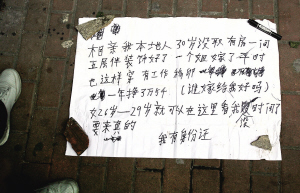 相亲 我本地人 30岁没取 有房一间
五层件装饰好了 一个姐嫁了 平时
也这样穿 有工作
一年挣3万54 (谁嫁给我好吗)
女26岁—29岁就可以 在这里看我时间
要来真的
我有身份证